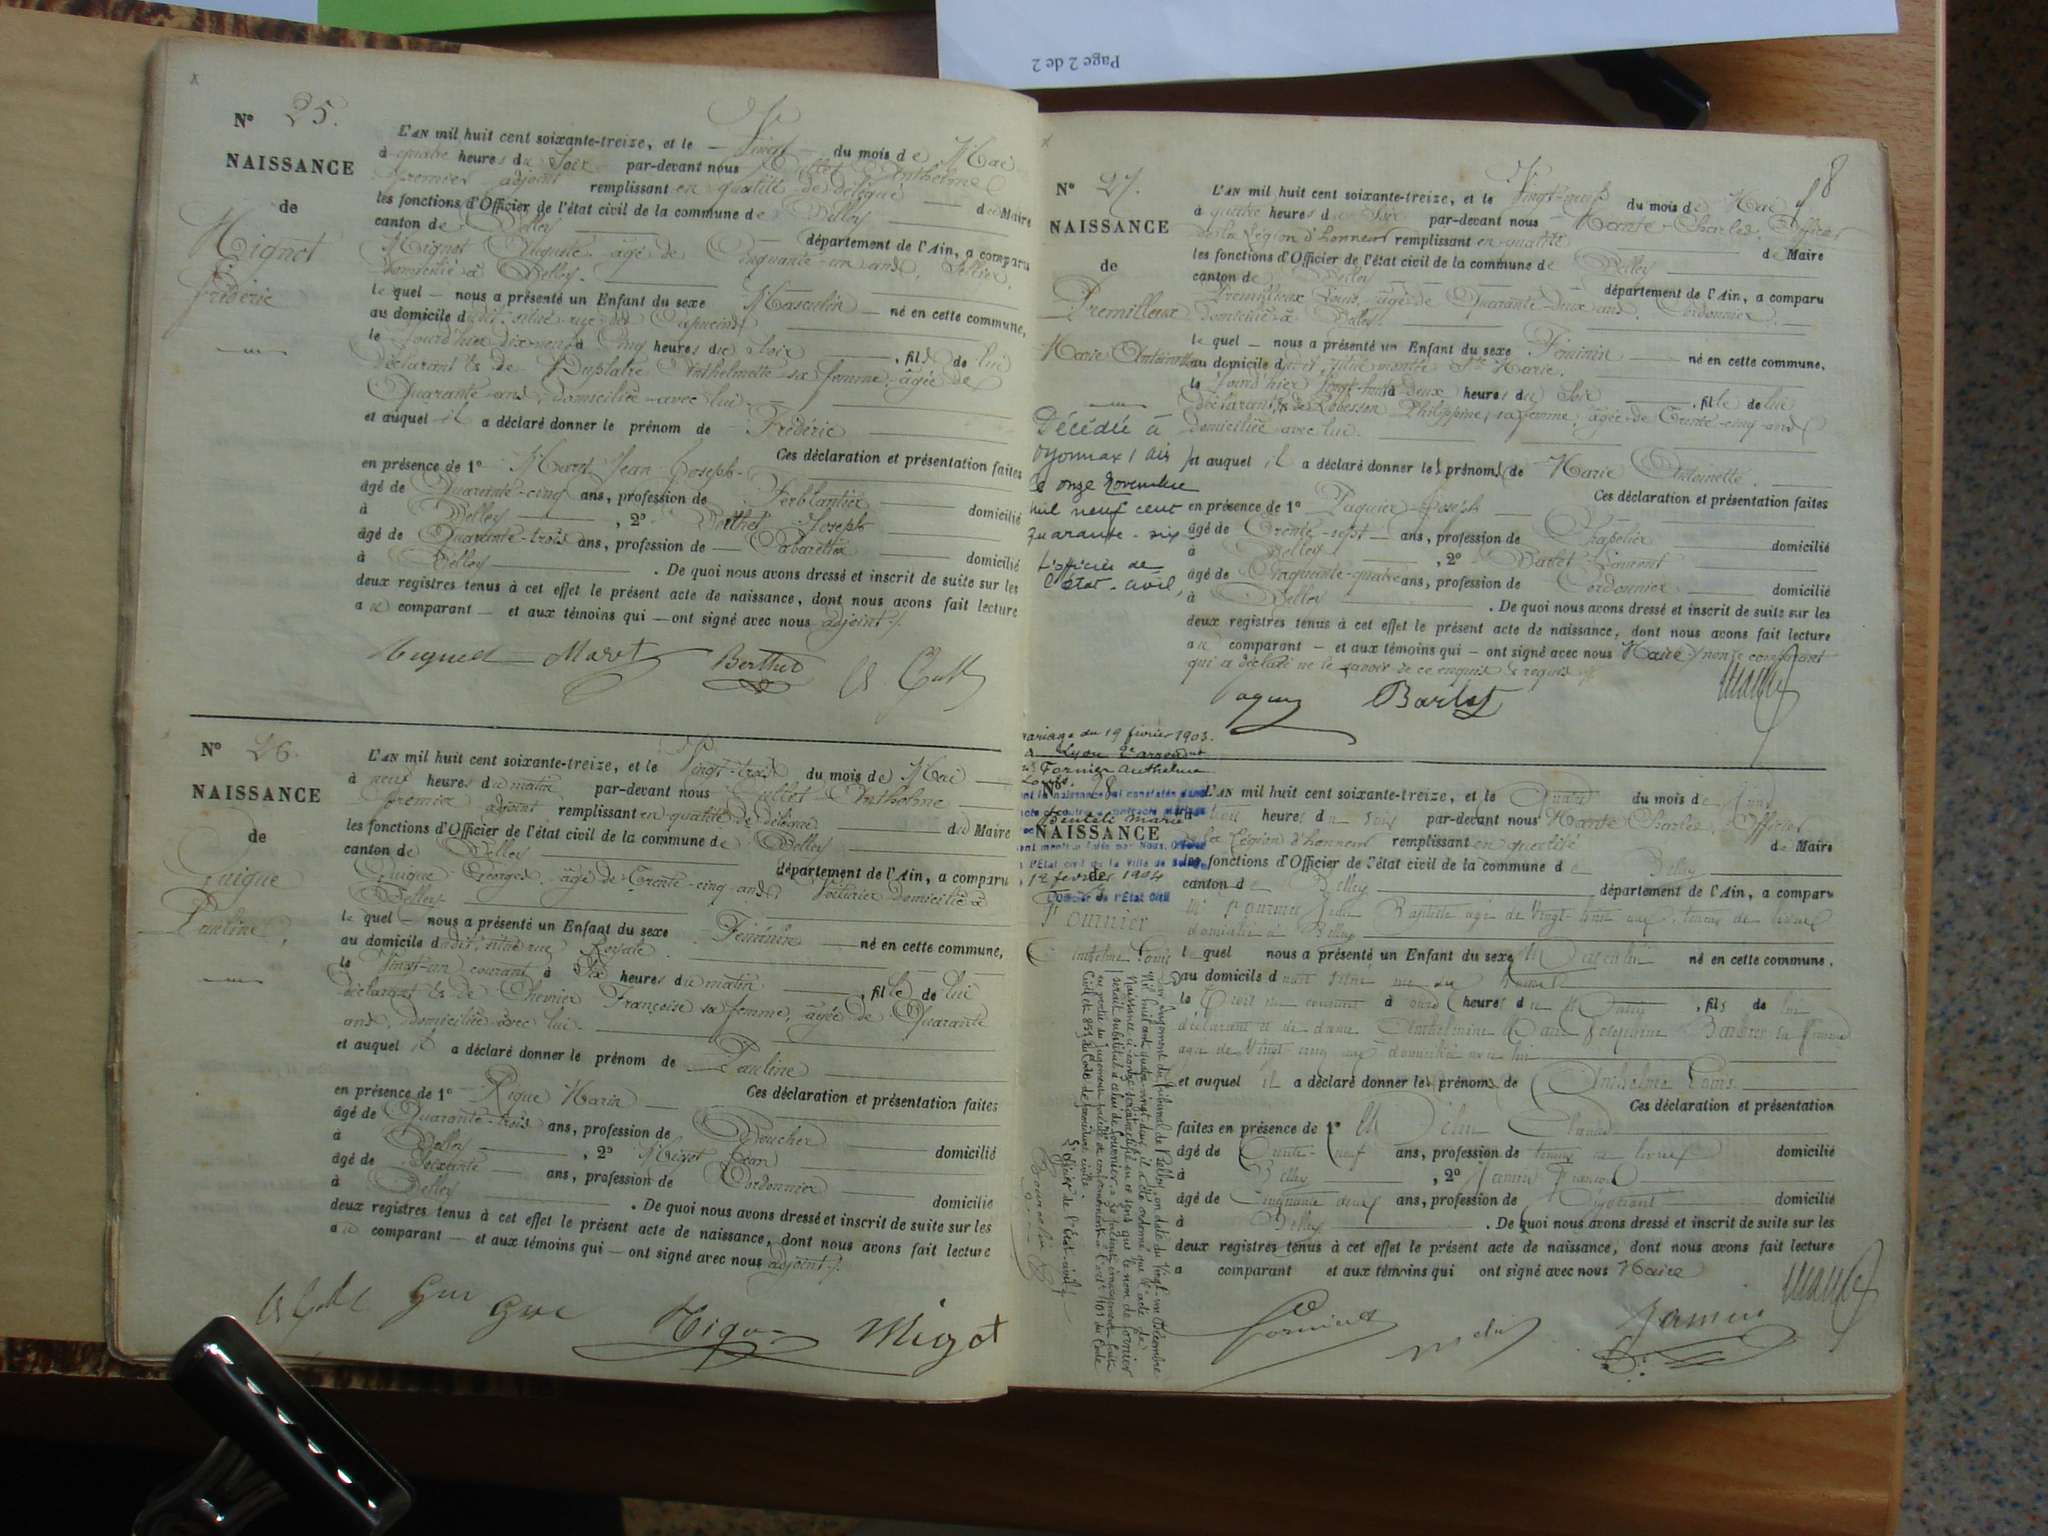 Page 2 de 2
N° 25.
NAISSANCE
de
Mignot
Frédéric
L'AN mil huit cent soixante-treize, et le Vingt du mois de Mai
à quatre heures du Soir par-devant nous Cullet Anthelme
premier adjoint remplissant en qualité de délégué du Maire
les fonctions d'Officier de l'état civil de la commune de Belley
canton de Belley département de l'Ain, a comparu
Mignot Auguste âgé de Cinquante-un ans, Sellier,
domicilié à Belley.
lequel nous a présenté un Enfant du sexe Masculin né en cette commune,
au domicile dudit, situé rue des Capucins
le jourd'hier dix-neuf à Cinq heures du Soir, fils de lui
déclarant & de Duplatre Anthelmette sa femme, âgée de
Quarante ans, domiciliée avec lui
et auquel il a déclaré donner le prénom de Frédéric
Ces déclaration et présentation faites
en présence de 1° Maret Jean Joseph
âgé de Quarante-cinq ans, profession de Ferblantier domicilié
à Belley, 2° Berthet Joseph
âgé de Quarante-trois ans, profession de Cabaretier domicilié
à Belley. De quoi nous avons dressé et inscrit de suite sur les
deux registres tenus à cet effet le présent acte de naissance, dont nous avons fait lecture
au comparant et aux témoins qui ont signé avec nous adjoint
Maret Berthet
N° 26.
NAISSANCE
de
Guigue
Pauline,
L'AN mil huit cent soixante-treize, et le Vingt-trois du mois de Mai
à neuf heures du matin par-devant nous Cullet Anthelme
premier adjoint remplissant en qualité de délégué du Maire
les fonctions d'Officier de l'état civil de la commune de Belley
canton de Belley département de l'Ain, a comparu
Guigue Georges, âgé de Trente-cinq ans, Voiturier domicilié à
Belley
lequel nous a présenté un Enfant du sexe Féminin né en cette commune,
au domicile dudit, situé rue Royale
le Vingt-un courant à Six heures du matin, fille de lui
déclarant & de Chevrier Françoise sa femme, âgée de Quarante
ans, domiciliée avec lui.
et auquel il a déclaré donner le prénom de Pauline
Ces déclaration et présentation faites
en présence de 1° Rigue Marin
âgé de Quarante-trois ans, profession de Boucher domicilié
à Belley, 2° Migot Jean
âgé de Soixante ans, profession de Cordonnier domicilié
à Belley. De quoi nous avons dressé et inscrit de suite sur les
deux registres tenus à cet effet le présent acte de naissance, dont nous avons fait lecture
au comparant et aux témoins qui ont signé avec nous adjoint
Migot
8
N° 27.
NAISSANCE
de
Premilleux
Marie Antoinette
Décédée à
Oyonnax (Ain)
le onze novembre
mil neuf cent
quarante-six
L'officier de
l'état-civil,
L'AN mil huit cent soixante-treize, et le Vingt-neuf du mois de Mai
à quatre heures du Soir par-devant nous Marte Charles, Officier
de la Légion d'honneur remplissant en qualité de Maire
les fonctions d'Officier de l'état civil de la commune de Belley
canton de Belley département de l'Ain, a comparu
Premilleux Louis, âgé de Quarante-deux ans, Cordonnier,
domicilié à Belley
lequel nous a présenté un Enfant du sexe Féminin né en cette commune,
au domicile dudit, situé montée Ste Marie.
le jourd'hier Vingt-huit à deux heures du Soir, fille de lui
déclarant, & de Philippine, sa femme, âgée de Trente-cinq ans
domiciliée avec lui.
et auquel il a déclaré donner les prénoms de Marie Antoinette.
Ces déclaration et présentation faites
en présence de 1° Paquier Joseph
âgé de Trente-sept ans, profession de Chapelier domicilié
à Belley, 2° Laurent
âgé de Cinquante-quatre ans, profession de Cordonnier domicilié
à Belley. De quoi nous avons dressé et inscrit de suite sur les
deux registres tenus à cet effet le présent acte de naissance, dont nous avons fait lecture
au comparant et aux témoins qui ont signé avec nous Maire, non le comparant
qui a déclaré ne le savoir de ce enquis & requis
mariage du 19 février 1903.
Lyon 2e arrondnt
Fornier Anthelme
Louis.
12 février 1904
N° 28
NAISSANCE
de
Fournier
Anthelme Louis
L'AN mil huit cent soixante-treize, et le Quatre du mois de Juin
à trois heures du soir par-devant nous Marte Charles, Officier
de la Légion d'honneur remplissant en qualité de Maire
les fonctions d'Officier de l'état civil de la commune de Belley
canton de Belley département de l'Ain, a comparu
Mr Fournier Jean Baptiste âgé de Vingt huit ans, teneur de livres
domicilié à Belley
lequel nous a présenté un Enfant du sexe Masculin né en cette commune.
au domicile dudit situé rue du
le Trois du courant à onze heures du Matin, fils de lui
déclarant et de dame Anthelmine Barbier sa femme
âgée de Vingt cinq ans domiciliée avec lui
et auquel il a déclaré donner les prénoms de Anthelme Louis
Ces déclaration et présentation
faites en présence de 1° Claude
âgé de Trente-neuf ans, profession de teneur de livres domicilié
à Belley, 2° Jamin François
âgé de Cinquante deux ans, profession de Négociant domicilié
à Belley. De quoi nous avons dressé et inscrit de suite sur les
deux registres tenus à cet effet le présent acte de naissance, dont nous avons fait lecture
a comparant et aux témoins qui ont signé avec nous Maire
Par Jugement du Tribunal de Belley, en date du Vingt-un Décembre
Mil huit cent quatre vingt-deux, il a été ordonné que l'acte de
Naissance ci-contre serait rectifié en ce sens que le nom de Fornier
serait substitué à celui de Fournier.
L'officier de l'état-civil,